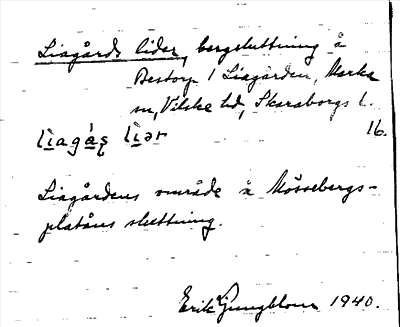 Liagårds lider, bergsluttning å
Bestorp 1 Liagården, Marka
sn, Vilske hd, Skaraborgs l.
lìagás lìər 16.
Liagårdens område å Mösseberg-
platåns sluttning.
Erik Ljungblom 1940.